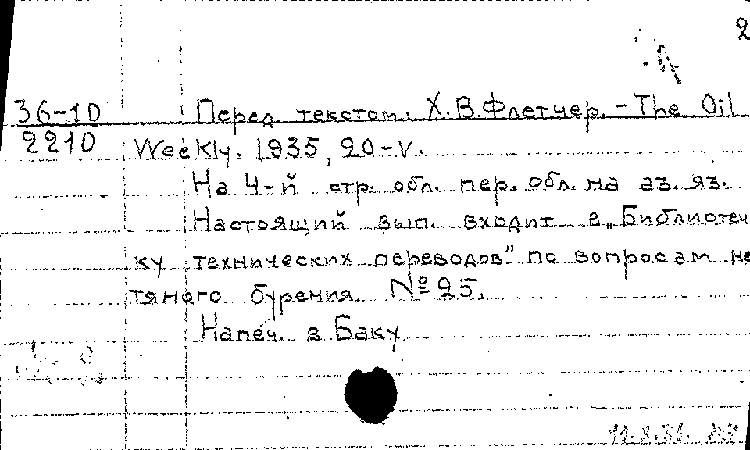 2
36-10 Перед текстом: Х.В.Флетчер. - The Oil
2210 Weekly. 1935, 20-V.
На 4-й стр. обл. пер. обл. на аз. яз.
Настоящий вып. входит в „Библиотеч
ку технических переводов" по вопросам не
тяного бурения. № 25.
Напеч. в Баку